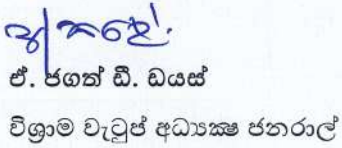 ඒ. ජගත් ඩී. ඩයස්
විශ්‍රාම වැටුප් අධ්‍යක්ෂ ජනරාල්